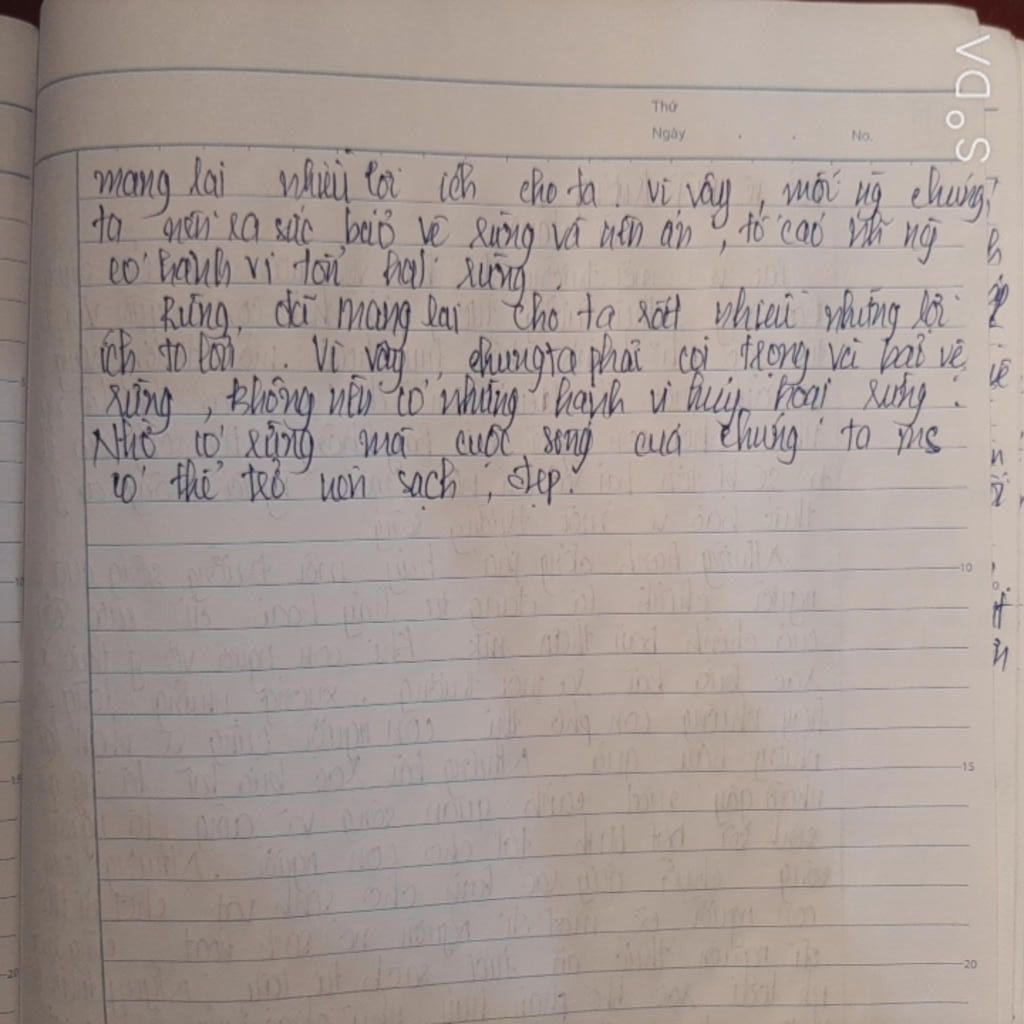 SODA
Thứ
Ngày . . No.
mang lại nhiều lợi ích cho ta. vì vậy, mỗi ng chúng
ta nên ra sức bảo vệ rừng và nên án, tố cáo ng
có hành vi tổn hại rừng.
Rừng, đã mang lại cho ta rất nhiều những lợi
ích to lớn. Vì vậy, chúng ta phải coi trọng và bảo vệ
rừng, không nên có những hành vi hủy hoại rừng.
Nhờ có rừng mà cuộc sống của chúng ta ms
có thể trở nên sạch, đẹp.
10
15
20